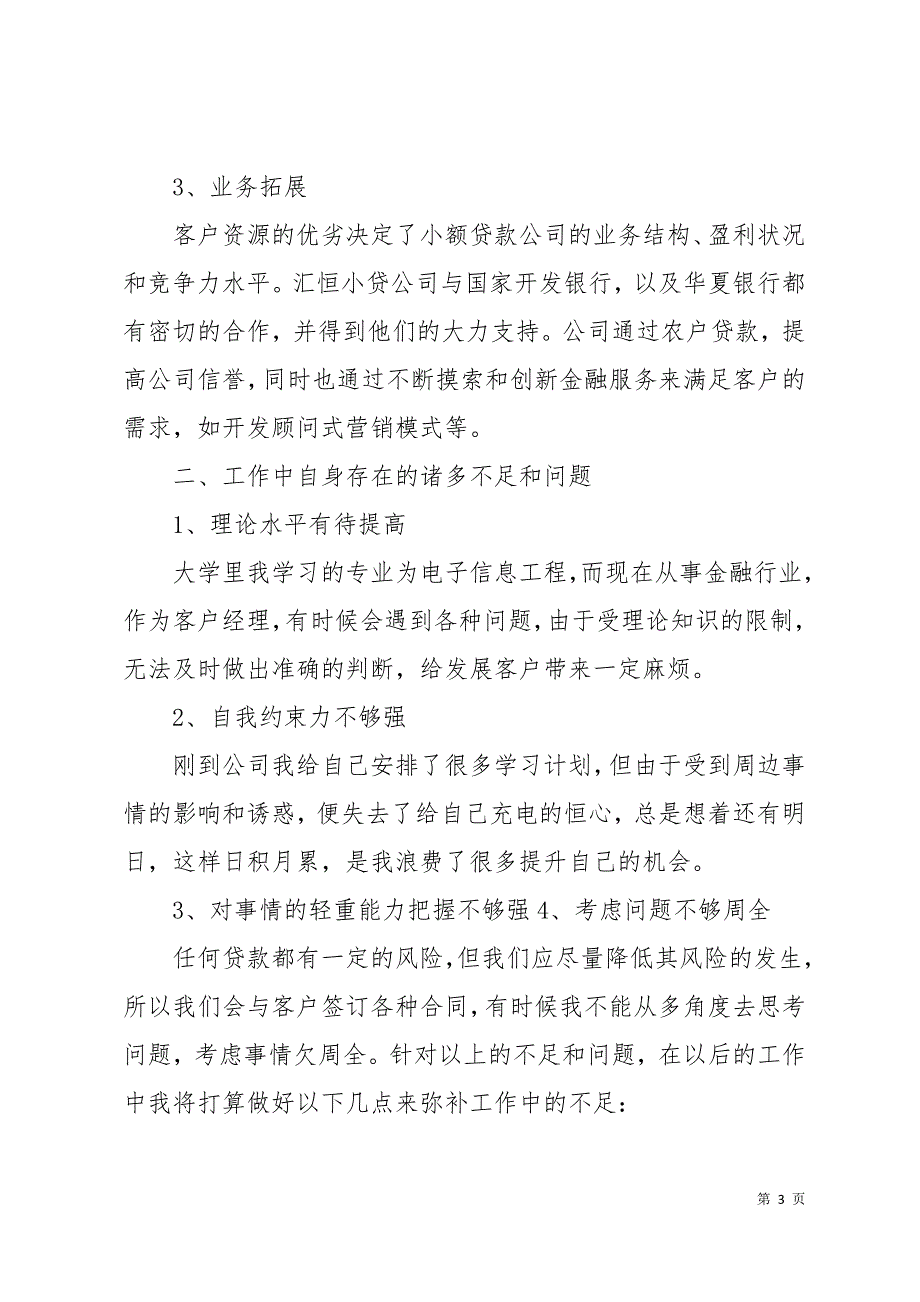 3、业务拓展
客户资源的优劣决定了小额贷款公司的业务结构、盈利状况
和竞争力水平。汇恒小贷公司与国家开发银行，以及华夏银行都
有密切的合作，并得到他们的大力支持。公司通过农户贷款，提
高公司信誉，同时也通过不断摸索和创新金融服务来满足客户的
需求，如开发顾问式营销模式等。
二、工作中自身存在的诸多不足和问题
1、理论水平有待提高
大学里我学习的专业为电子信息工程，而现在从事金融行业，
作为客户经理，有时候会遇到各种问题，由于受理论知识的限制，
无法及时做出准确的判断，给发展客户带来一定麻烦。
2、自我约束力不够强
刚到公司我给自己安排了很多学习计划，但由于受到周边事
情的影响和诱惑，便失去了给自己充电的恒心，总是想着还有明
日，这样日积月累，是我浪费了很多提升自己的机会。
3、对事情的轻重能力把握不够强4、考虑问题不够周全
任何贷款都有一定的风险，但我们应尽量降低其风险的发生，
所以我们会与客户签订各种合同，有时候我不能从多角度去思考
问题，考虑事情欠周全。针对以上的不足和问题，在以后的工作
中我将打算做好以下几点来弥补工作中的不足：
第 3 页